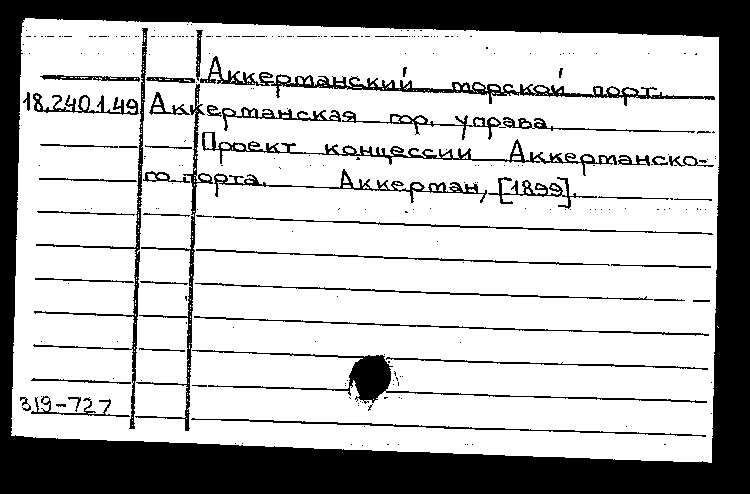 Аккерманский морской порт.
18.240.1.49 Аккерманская гор. управа.
Проект концессии Аккерманско-
го порта. Аккерман, [1899].
319-727